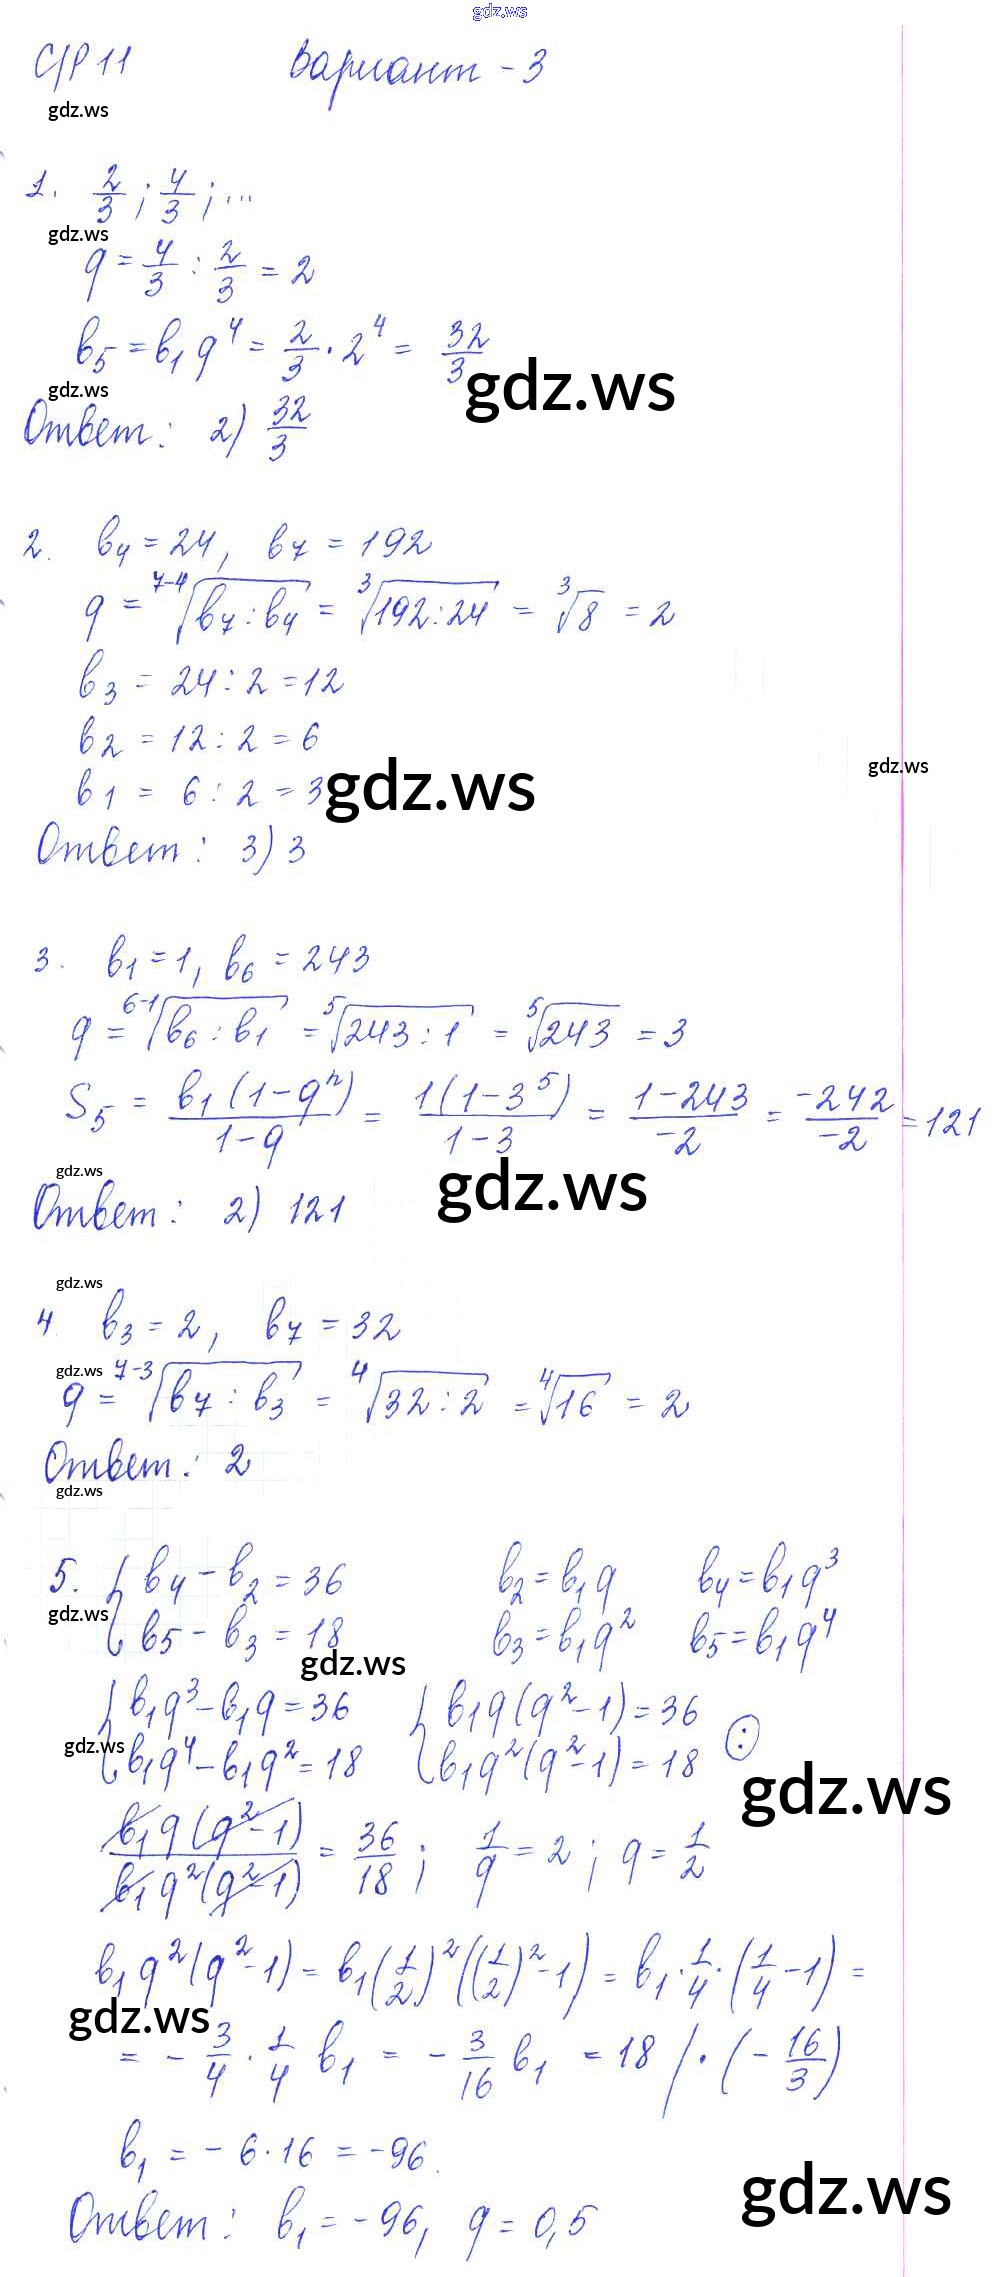 gdz.ws
С/Р 11 Вариант - 3
gdz.ws
1. 2/3 ; 4/3 ; ...
gdz.ws
q = 4/3 : 2/3 = 2
b₅ = b₁q⁴ = 2/3 · 2⁴ = 32/3
gdz.ws
gdz.ws
Ответ: 2) 32/3
2. b₄ = 24, b₇ = 192
q = ⁷⁻⁴√(b₇ : b₄) = ³√(192 : 24) = ³√8 = 2
b₃ = 24 : 2 = 12
b₂ = 12 : 2 = 6
gdz.ws
b₁ = 6 : 2 = 3
gdz.ws
Ответ: 3) 3
3. b₁ = 1, b₆ = 243
q = ⁶⁻¹√(b₆ : b₁) = ⁵√(243 : 1) = ⁵√243 = 3
S₅ = b₁(1-qⁿ)/(1-q) = 1(1-3⁵)/(1-3) = (1-243)/(-2) = -242/-2 = 121
gdz.ws
gdz.ws
Ответ: 2) 121
gdz.ws
4. b₃ = 2, b₇ = 32
gdz.ws
q = ⁷⁻³√(b₇ : b₃) = ⁴√(32 : 2) = ⁴√16 = 2
Ответ: 2
gdz.ws
5. { b₄ - b₂ = 36 b₂ = b₁q b₄ = b₁q³
gdz.ws
b₅ - b₃ = 18 b₃ = b₁q² b₅ = b₁q⁴
gdz.ws
{ b₁q³ - b₁q = 36 { b₁q(q² - 1) = 36
gdz.ws
b₁q⁴ - b₁q² = 18 b₁q²(q² - 1) = 18 :
gdz.ws
b₁q(q² - 1)/b₁q²(q² - 1) = 36/18 ; 1/q = 2 ; q = 1/2
b₁q²(q² - 1) = b₁(1/2)²((1/2)² - 1) = b₁ · 1/4 · (1/4 - 1) =
gdz.ws
= - 3/4 · 1/4 b₁ = - 3/16 b₁ = 18 / · (- 16/3)
b₁ = - 6 · 16 = -96.
gdz.ws
Ответ: b₁ = -96, q = 0,5